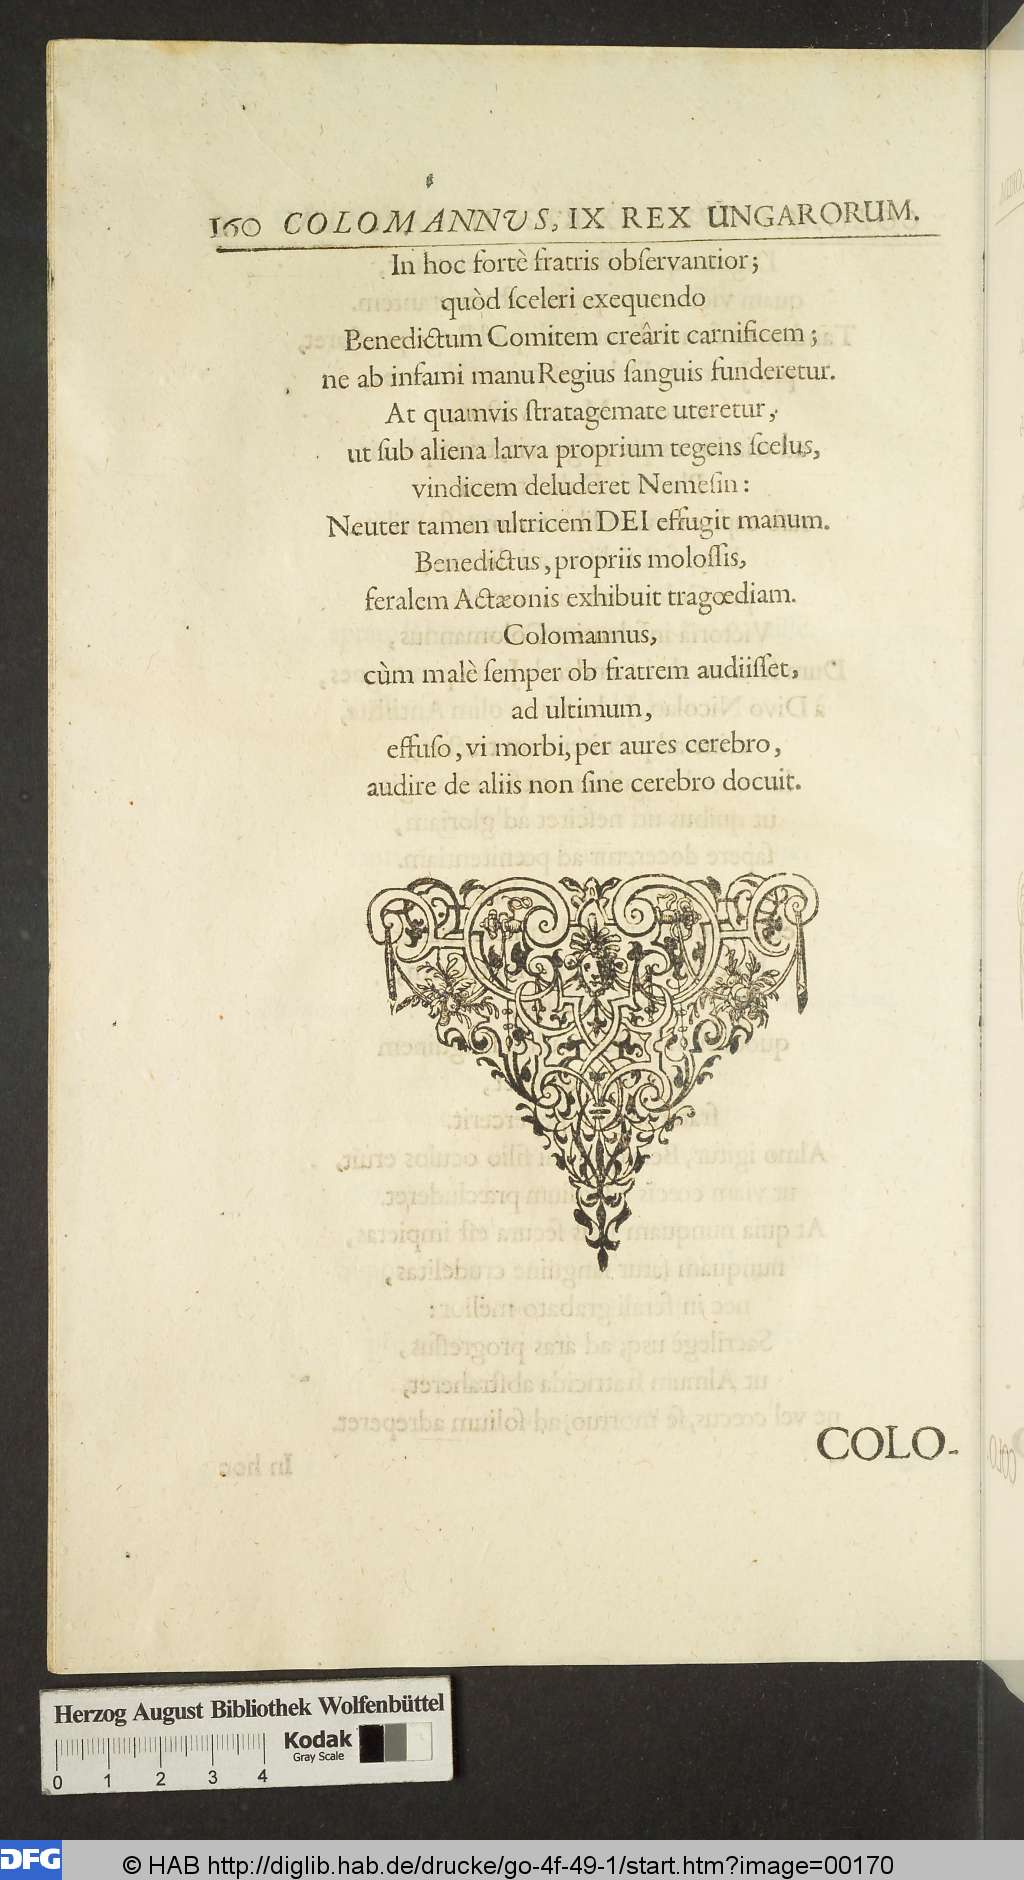 160 COLOMANNVS, IX REX UNGARORUM.
In hoc fortè fratris obſervantior;
quòd ſceleri exequendo
Benedictum Comitem creârit carnificem;
ne ab infami manu Regius ſanguis funderetur.
At quamvis ſtratagemate uteretur,
ut ſub aliena larva proprium tegens ſcelus,
vindicem deluderet Nemeſin:
Neuter tamen ultricem DEI effugit manum.
Benedictus, propriis moloſſis,
feralem Actæonis exhibuit tragœdiam.
Colomannus,
cùm malè ſemper ob fratrem audiiſſet,
ad ultimum,
effuſo, vi morbi, per aures cerebro,
audire de aliis non ſine cerebro docuit.
COLO-
Herzog August Bibliothek Wolfenbüttel
Kodak
Gray Scale
0 1 2 3 4
DFG
© HAB http://diglib.hab.de/drucke/go-4f-49-1/start.htm?image=00170